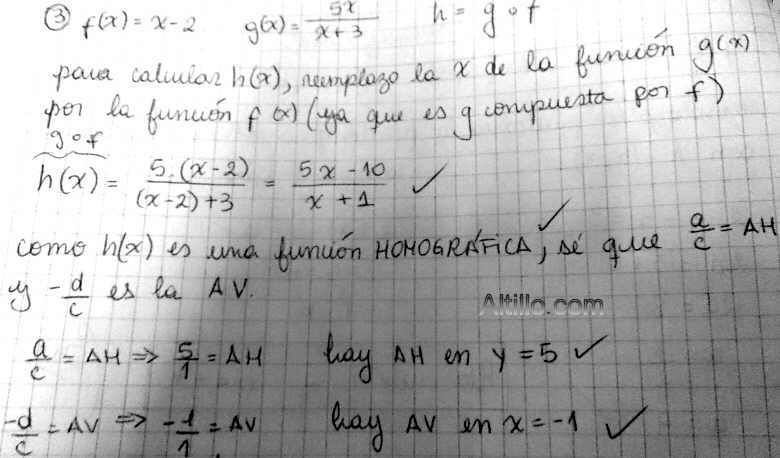 ③ f(x) = x-2 g(x) = 5x/x+3 h = g∘f
para calcular h(x), reemplazo la x de la función g(x)
por la función f(x) (ya que es g compuesta por f)
g∘f
h(x) = 5.(x-2)/(x-2)+3 = 5x-10/x+1 ✓
como h(x) es una función HOMOGRÁFICA, ✓ sé que a/c = AH
y -d/c es la AV.
Altillo.com
a/c = AH ⇒ 5/1 = AH hay AH en y = 5 ✓
-d/c = AV ⇒ -1/1 = AV hay AV en x = -1 ✓